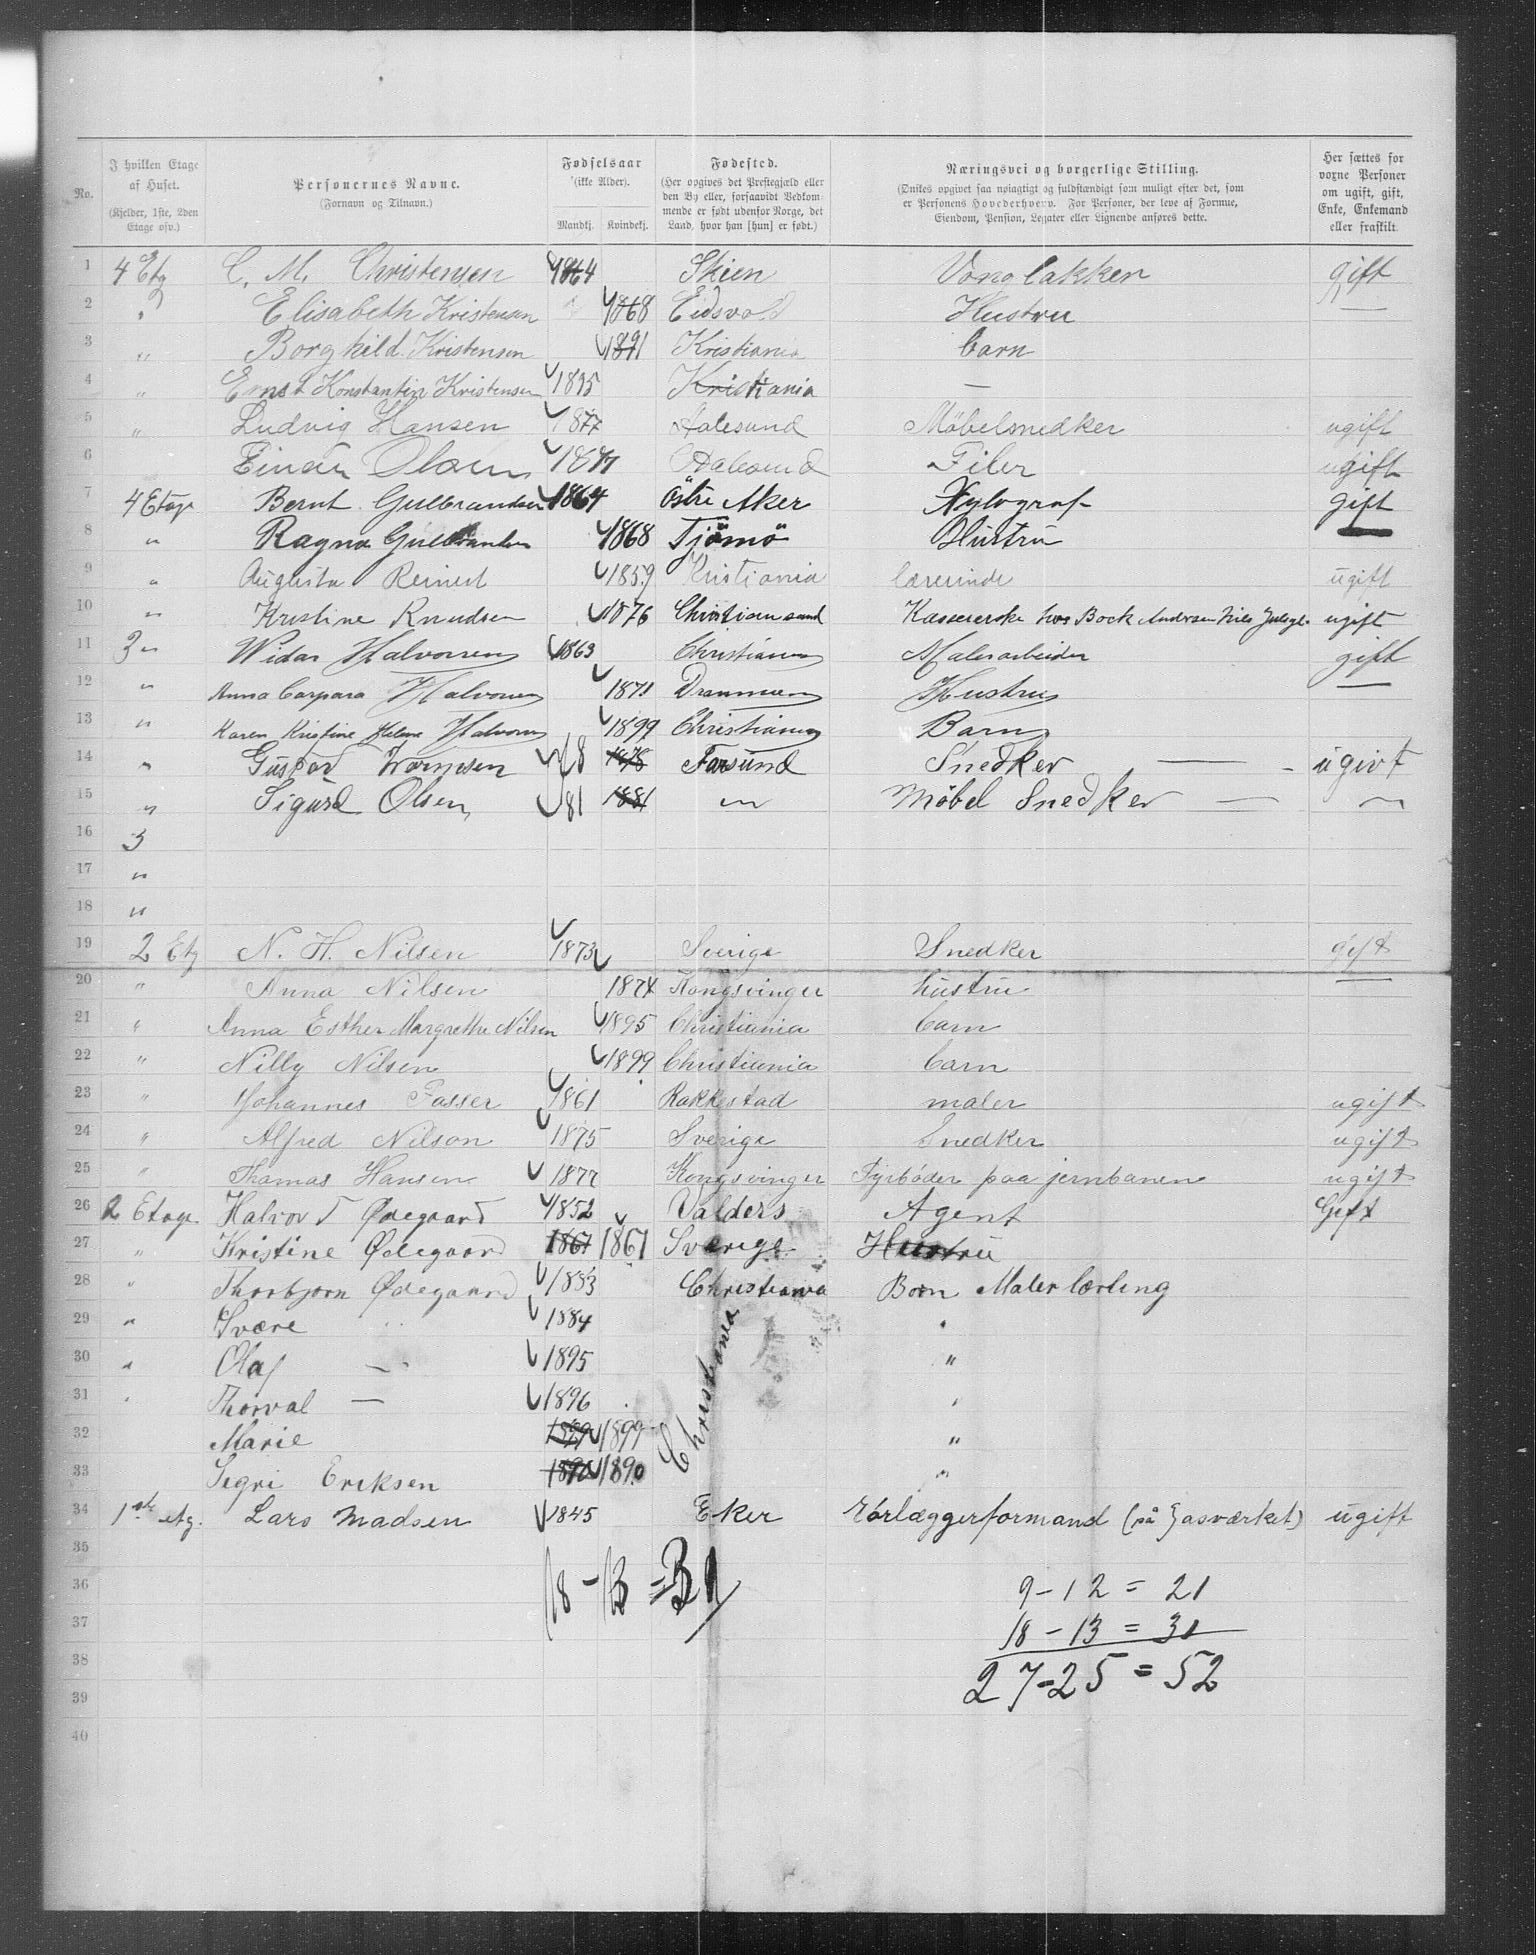 No. | I hvilken Etage af Huset. (Kjelder, 1ste, 2den Etage osv.) | Personernes Navne. (Fornavn og Tilnavn.) | Fødselsaar (ikke Alder). Mandkj. Kvindekj. | Fødested. (Her opgives det Prestegjæld eller den By eller, forsaavidt Vedkommende er født udenfor Norge, det Land, hvor han [hun] er født.) | Næringsvei og borgerlige Stilling. (Ønskes opgivet saa nøiagtigt og fuldstændigt som muligt efter det, som er Personens Hovederhverv. For Personer, der leve af Formue, Eiendom, Pension, Legater eller Lignende anføres dette. | Her sættes for voxne Personer om ugift, gift, Enke, Enkemand eller fraskilt.
1 4 Etg C. M. Christensen 1864 Skien gift
2 " Elisabeth Kristensen 1868 Eidsvold Hustru —
3 " Borghild Kristensen 1891 Kristiania barn
4 " Ernst Konstantin Kristensen 1895 Kristiania —
5 " Ludvig Hansen 1877 Aalesund Møbelsnedker ugift
6 Einar Olsen 1877 Aalesund Filer ugift
7 4 Etage Bernt Gulbrandsen 1864 Östre Aker Xylograf gift
8 " Ragna Gulbrandsen 1868 Tjömö Hustru —
9 " Augusta Reinert 1859 Kristiania lærerinde ugift
10 " Kristine Knudsen 1876 Christiansand Kassererske hos Bock Andersen Nils Julsgt. ugift
11 3 " Widar Halvorsen 1863 Christiania Malerarbeider gift
12 " Anna Caspara Halvorsen 1871 Drammen Hustru —
13 " Karen Kristine Helene Halvorsen 1899 Christiania Barn
14 " Gustav 78 1878 Farsund Snedker — ugivt
15 " Sigurd Olsen 81 1881 " Møbel Snedker — "
16 3
17 "
18 "
19 2 Etg N. H. Nilsen 1873 Sverige Snedker gift
20 " Anna Nilsen 1874 Kongsvinger hustru —
21 " Anna Esther Margrethe Nilsen 1895 Christiania barn
22 " Nilly Nilsen 1899 Christiania barn
23 " Johannes Fosser 1861 Rakkestad maler ugift
24 " Alfred Nilson 1875 Sverige Snedker ugift
25 " Thomas Hansen 1877 Kongsvinger Fyrbøder paa jernbanen ugift
26 2 Etage Halvor Ødegaard 1852 Valders Agent Gift
27 " Kristine Ødegaard 1861 1861 Sverige Hustru
28 " Thorbjørn Ødegaard 1883 Christiania Barn Malerlærling
29 " Svære 1884 "
30 " Olaf — 1895 "
31 " Thorval — 1896 "
32 Marie 1899 1899 "
Christiania
33 Sigri Eriksen 1890 1890 "
34 1ste etg. Lars Madsen 1845 Eker Rörlæggerformand (på Gasværket) ugift
35
18 – 13 = 31
36 9 – 12 = 21
37 18 – 13 = 31
38 27 – 25 = 52
39
40